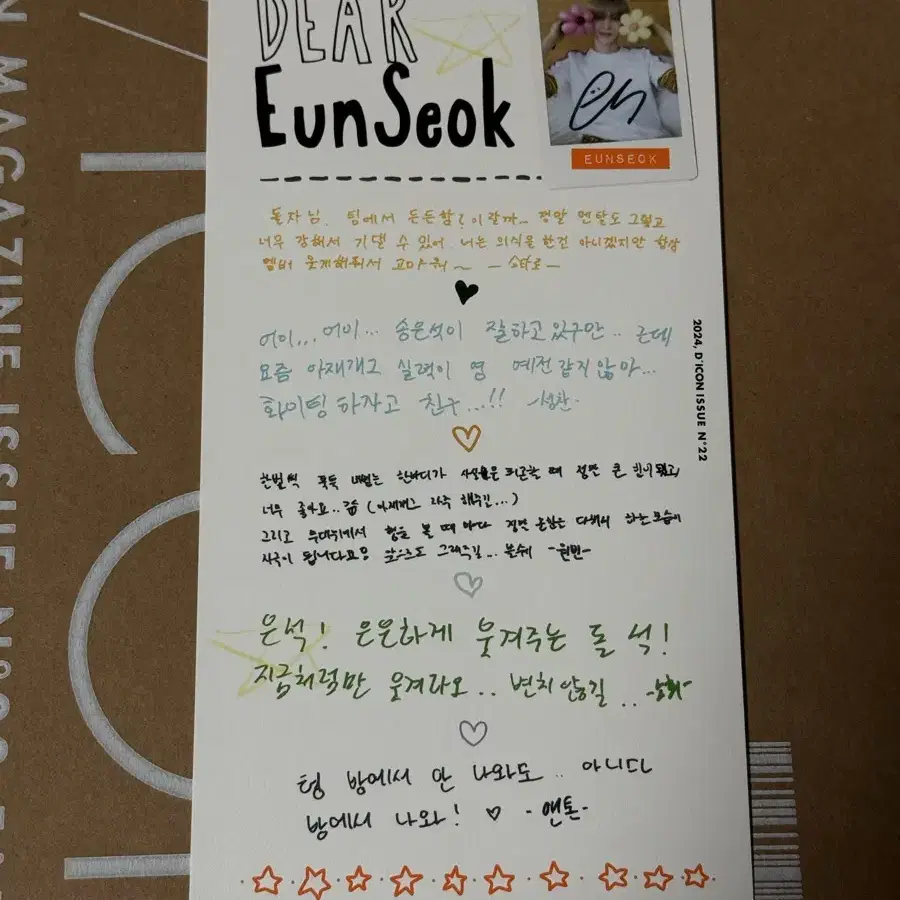 DEAR
EunSeok
en
EUNSEOK
돌자님. 팀에서 든든함?이랄까~ 정말 멘탈도 그렇고
너무 강해서 기댈 수 있어 너는 의식을 한건 아니겠지만 항상
멤버 웃게해줘서 고마워~ -쇼타로-
어이... 어이... 송은석이 잘하고 있구만.. 근데
요즘 아재개그 실력이 영 예전 같지 않아...
화이팅 하자고 친구...!! -성찬-
한번씩 툭툭 내뱉는 한마디가 사실은 피곤할 때 정말 큰 힘이 됐고,
너무 좋아요.. (아재개그 자주 해주길...)
그리고 무대위에서 형을 볼 때 마다 정말 온힘을 다해서 하는 모습에
자극이 됩니다요 앞으로도 그래주길... -원빈-
은석! 은은하게 웃겨주는 돌 석!
지금처럼만 웃겨라오.. 변치 않길.. -소희-
형 방에서 안 나와도.. 아니다
방에서 나와! -앤톤-
2024, D'ICON ISSUE N°22
N MAGAZINE ISSUE N°22